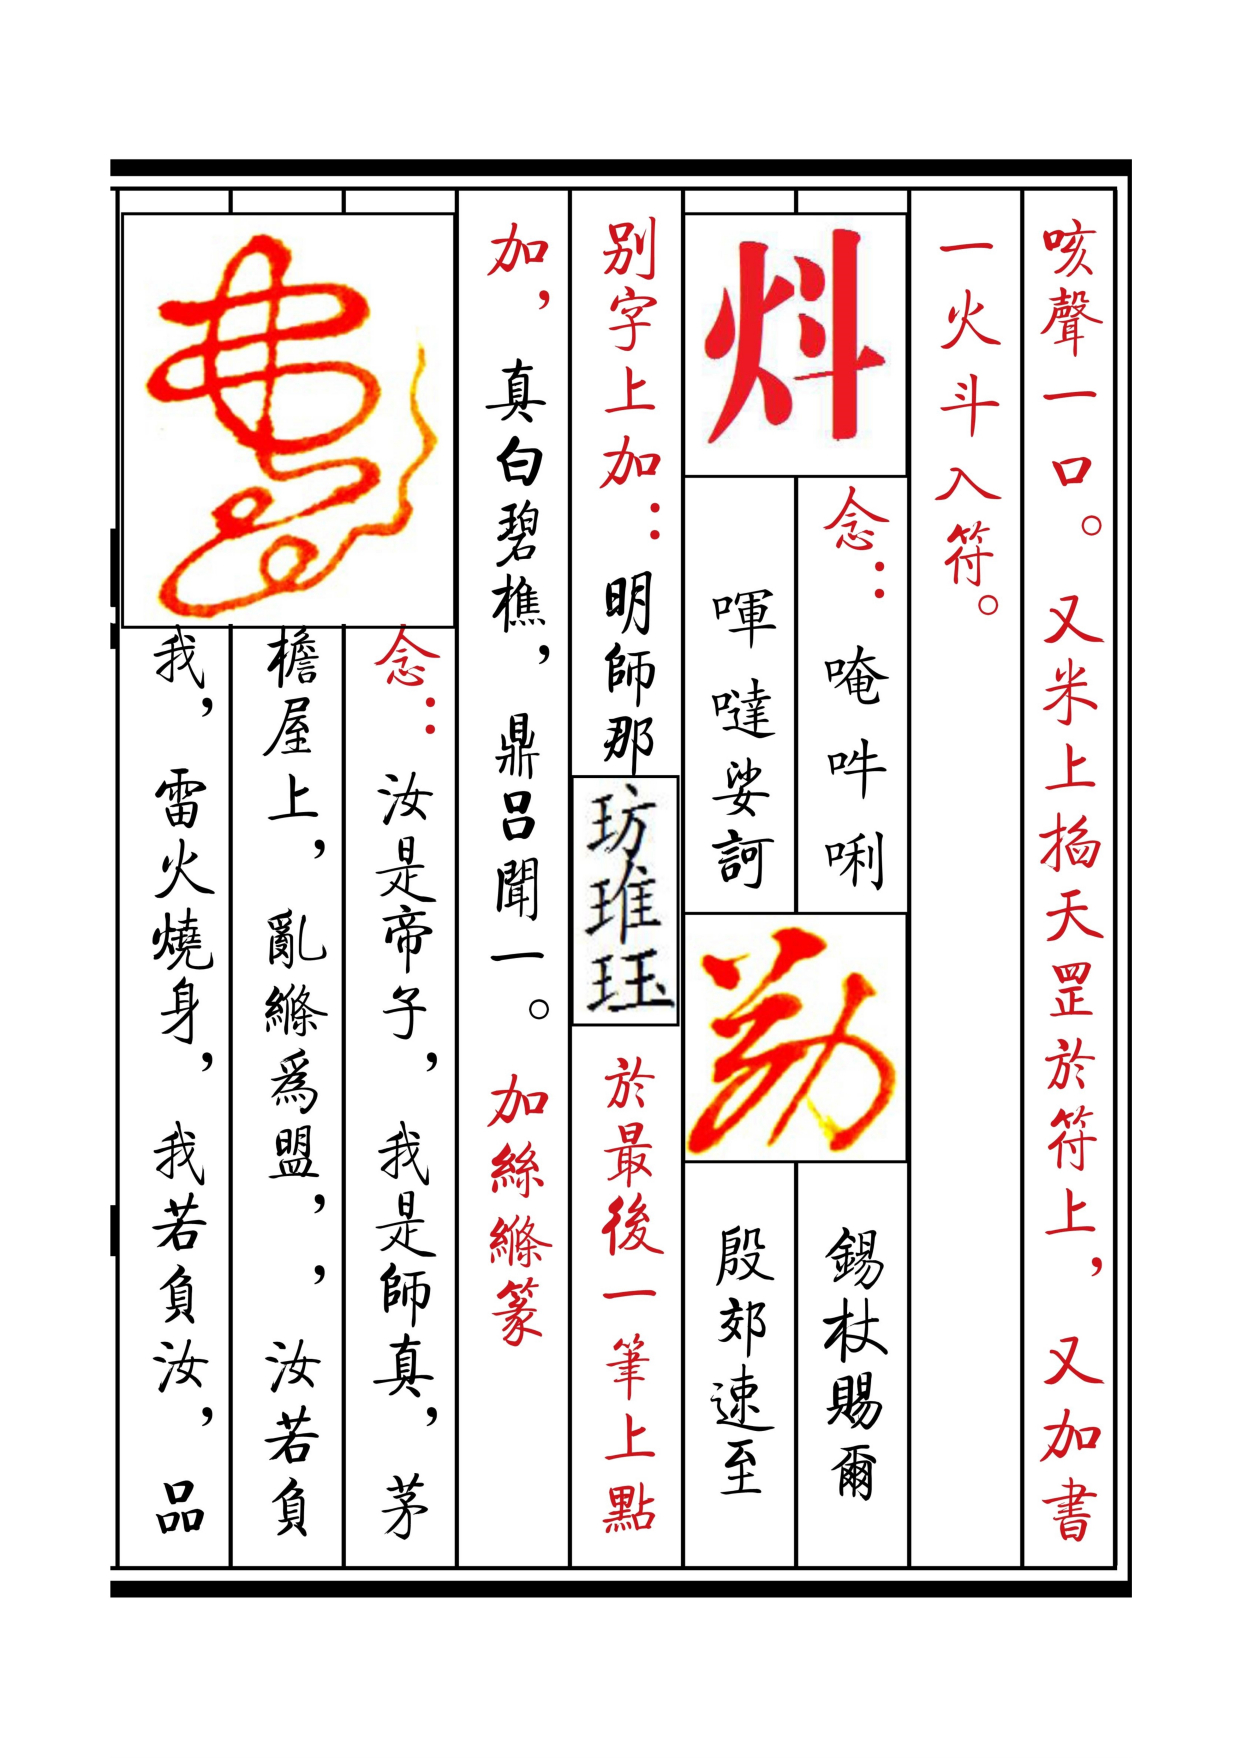 咳聲一口。又米上掐天罡於符上，又加書
一火斗入符。
炓
念：唵吽唎
㖇噠娑訶
錫杖賜爾
殷郊速至
别字上加：明師那
玏琟珏
於最後一筆上點
加，真白碧樵，鼎呂聞一。加絲縧篆
念：汝是帝子，我是師真，茅
檐屋上，亂縧爲盟，，汝若負
我，雷火燒身，我若負汝，品